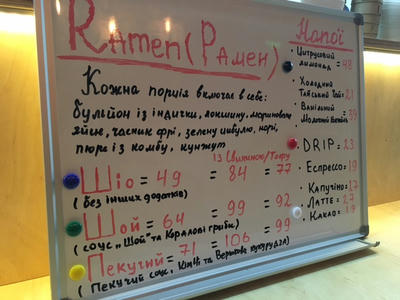 Ramen (Рамен)
Кожна порція включає в себе:
бульйон із індички, локшину, мариноване
яйце, часник фрі, зелену цибулю, норі,
пюре із комбу, кунжут
Із Свининою/Тофу
Шіо = 49 = 84 = 77
(без інших додатків)
Шой = 64 = 99 = 92
(соус "Шой" та Коралові гриби)
Пекучий = 71 = 106 = 99
(Пекучий соус, Кімчі та Вершкова кукурудза)
Напої
Цитрусовий
лимонад = 48
Холодний
Тайський Чай =
Ванільний
Молочний = 39
DRIP = 23
Еспрессо = 19
Капучіно = 27
Латте = 27
Какао = 19